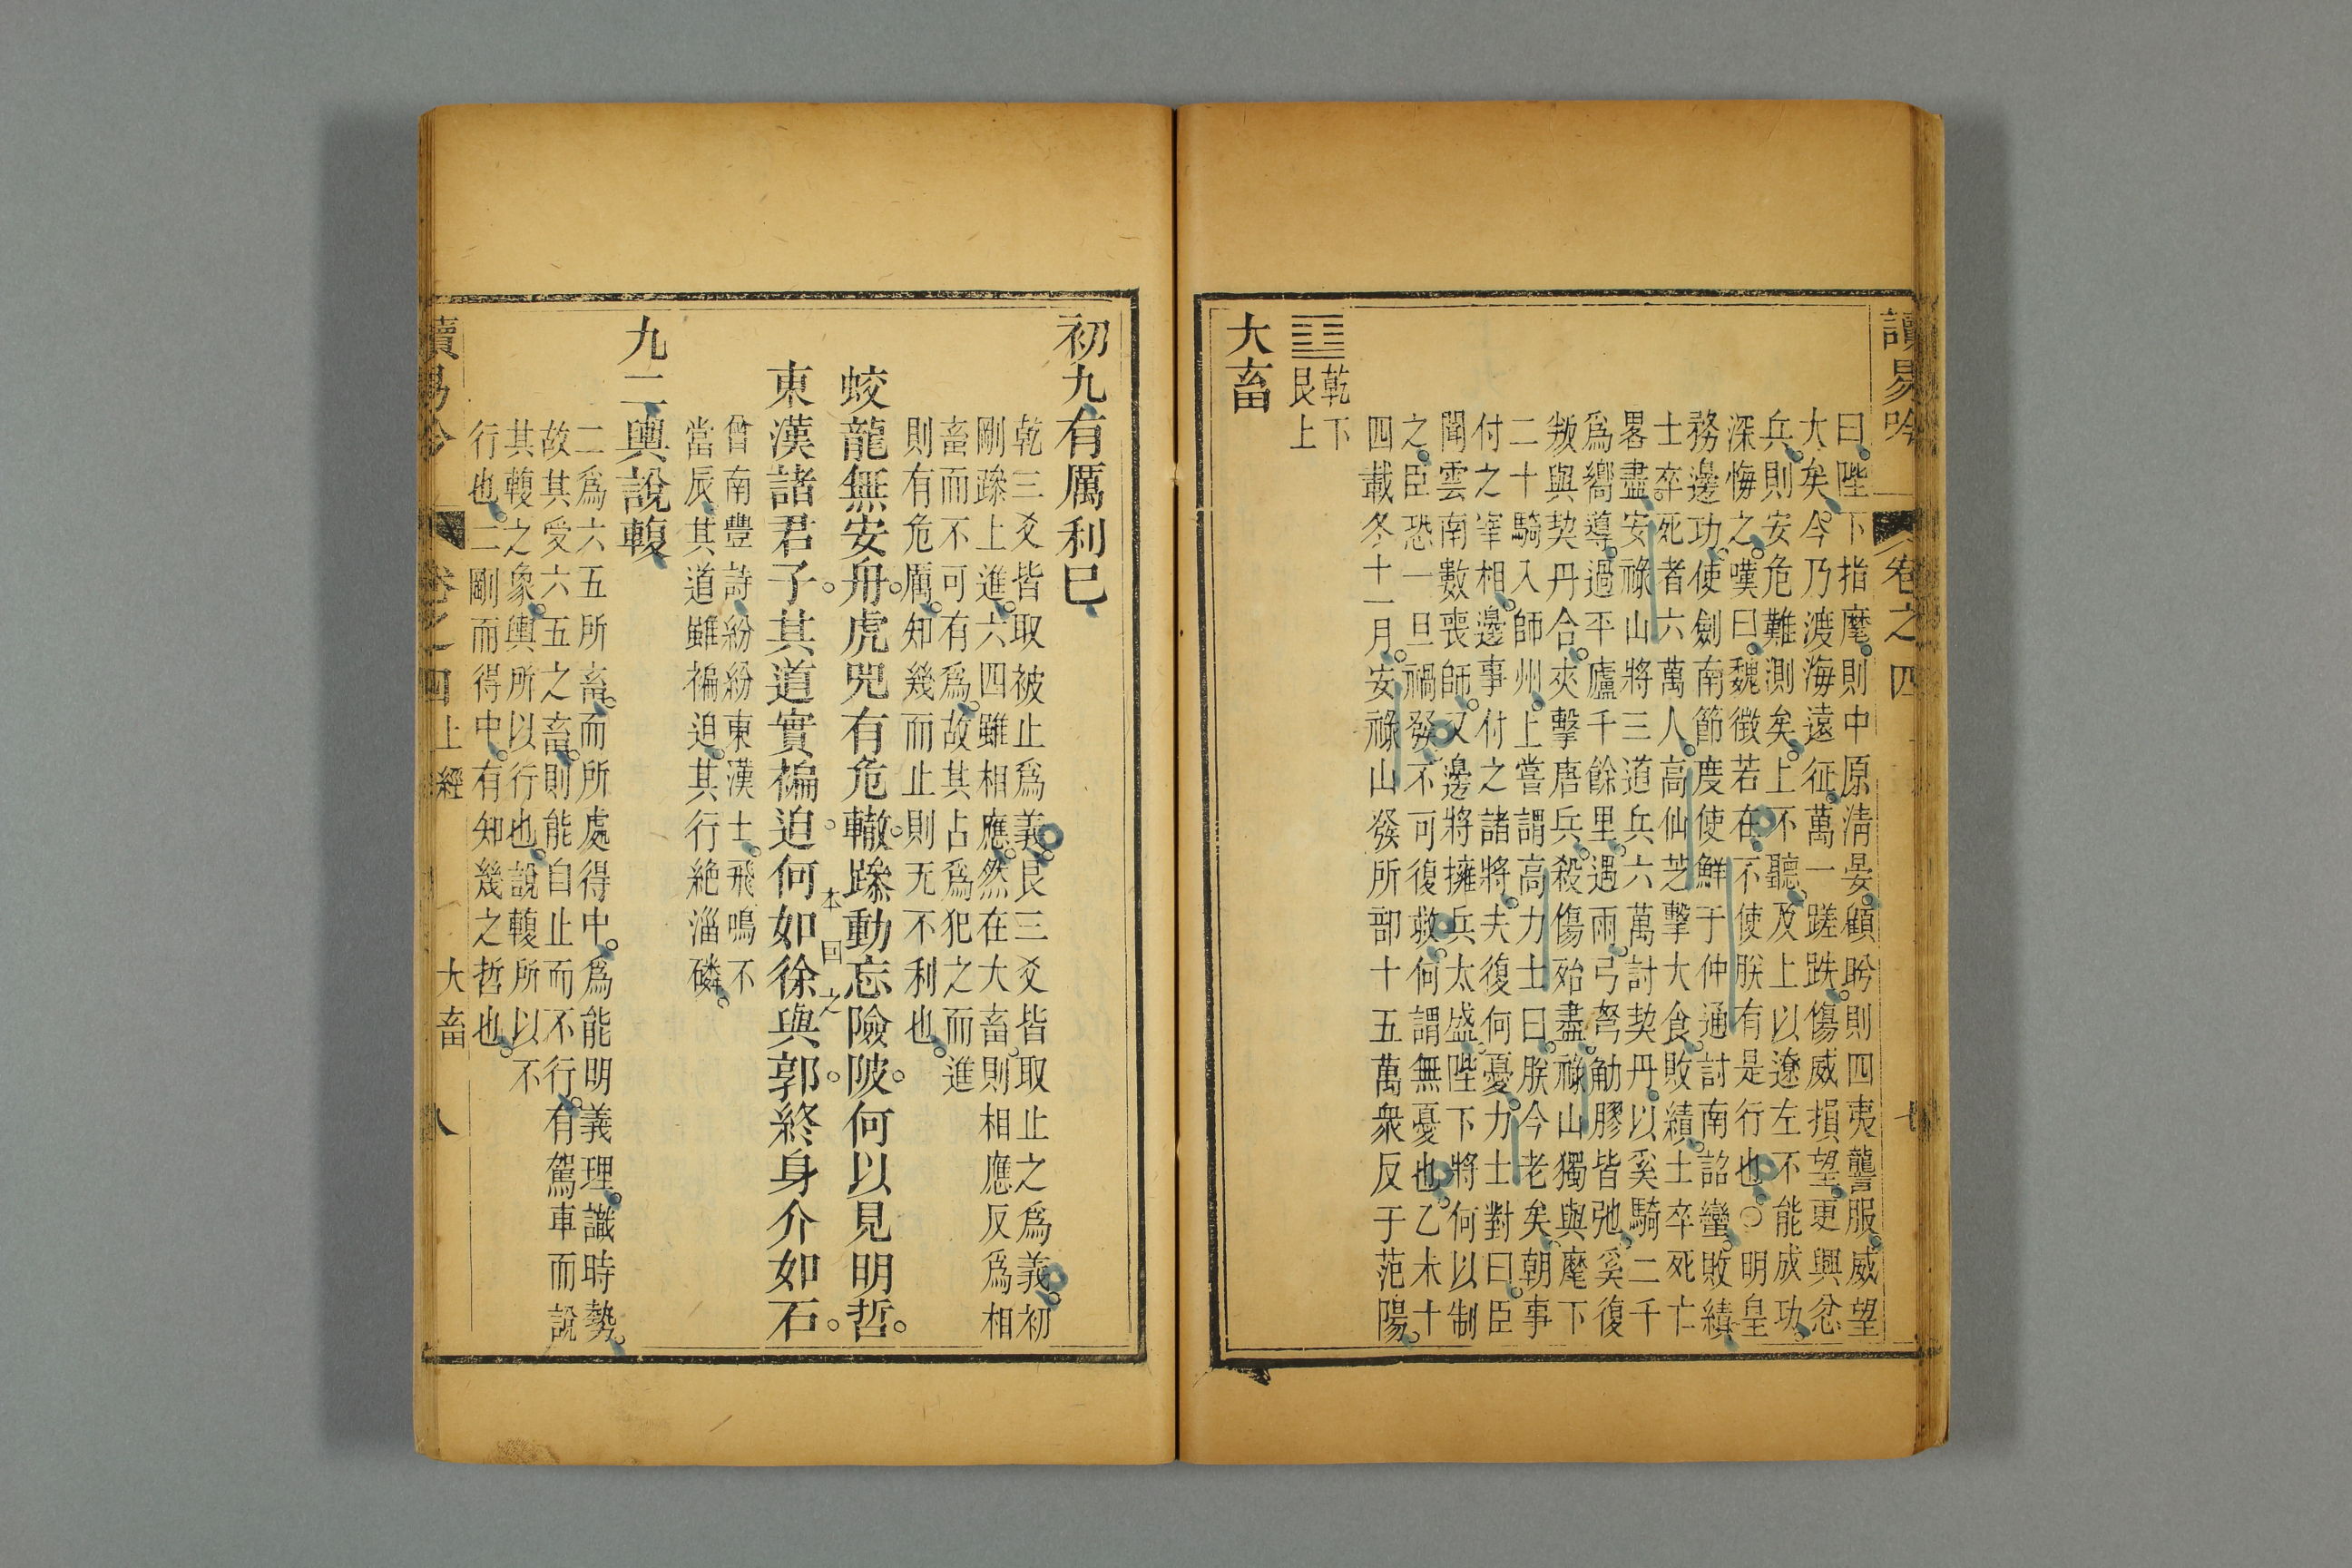 讀易吟 卷之四 七
曰陛下指麾則中原淸晏顧眄則四夷讋服威望
大矣今乃渡海遠征萬一蹉跌傷威損望更興忿
兵則安危難測矣上不聽及上以遼左不能成功
深悔之嘆曰魏徵若在不使朕有是行也○明皇
務邊功使劍南節度使鮮于仲通討南詔蠻敗績
士卒死者六萬人高仙芝擊大食敗績士卒死亡
畧盡安祿山將三道兵六萬討契丹以奚騎二千
爲嚮導過平廬千餘里遇雨弓弩觔膠皆弛奚復
叛與契丹合夾擊唐兵殺傷殆盡祿山獨與麾下
二十騎入師州上嘗謂高力士曰朕今老矣朝事
付之宰相邊事付之諸將夫復何憂力士對曰臣
聞雲南數喪師又邊將擁兵太盛陛下將何以制
之臣恐一旦禍發不可復救何謂無憂也乙未十
四載冬十一月安祿山發所部十五萬衆反于范陽
乾下
艮上
大畜
初九有厲利已
乾三爻皆取被止爲義艮三爻皆取止之爲義初
剛躁上進六四雖相應然在大畜則相應反爲相
畜而不可有爲故其占爲犯之而進
則有危厲知幾而止則无不利也
蛟龍無安舟虎兕有危轍躁動忘險陂何以見明哲
本回之
東漢諸君子其道實褊迫何如徐與郭終身介如石
曾南豐詩紛紛東漢士飛鳴不
當辰其道雖褊迫其行絶淄磷
九二輿說輹
二爲六五所畜而所處得中爲能明義理識時勢
故其受六五之畜則能自止而不行有駕車而說
其輹之象輿所以行也說輹所以不
行也二剛而得中有知幾之哲也
讀易吟 卷之四 上經 大畜 八